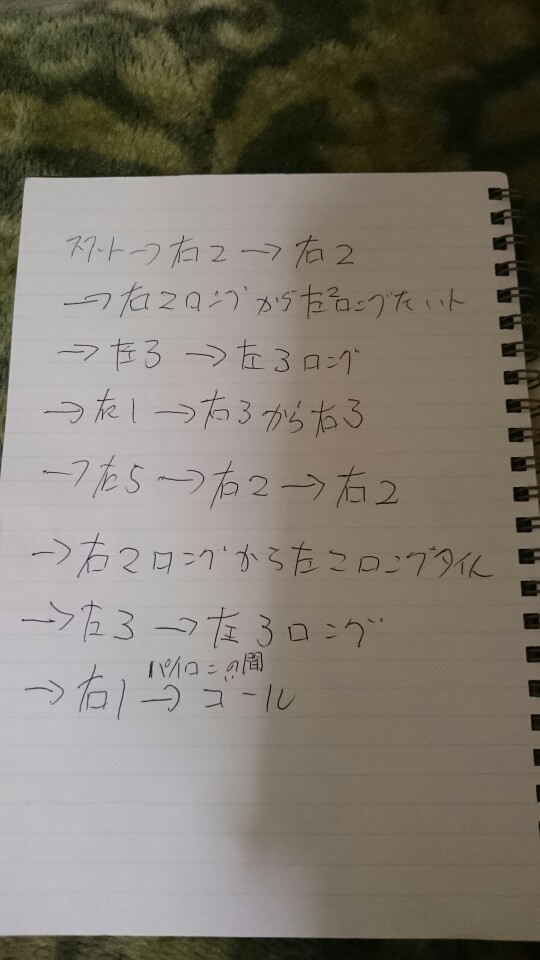 スタート→右2→右2
→右2ロングから左2ロングたいト
→左3→左3ロング
→左1→右3から右3
→左5→右2→右2
→右2ロングから左2ロングタイト
→左3→左3ロング
パイロンの間
→右1→ゴール